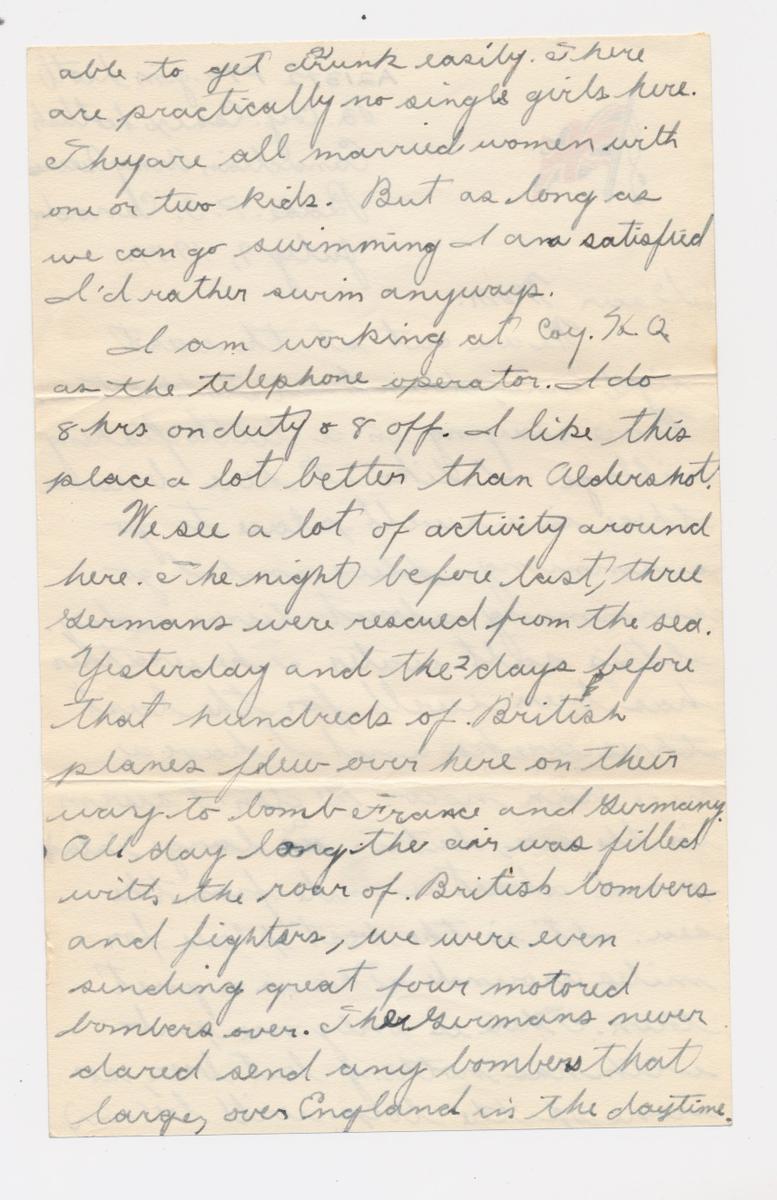 able to get drunk easily. There
are practically no single girls here.
They are all married women with
one or two kids. But as long as
we can go swimming I am satisfied
I'd rather swim anyways.
I am working at Coy. H Q.
as the telephone operator. I do
8 hrs on duty & 8 off. I like this
place a lot better than Aldershot.
We see a lot of activity around
here. The night before last, three
Germans were rescued from the sea.
Yesterday and the 2 days before
that hundreds of British
planes flew over here on their
way to bomb France and Germany.
All day long the air was filled
with the roar of British bombers
and fighters, we were even
sending great four motored
bombers over. The Germans never
dared send any bombers that
large, over England in the daytime.